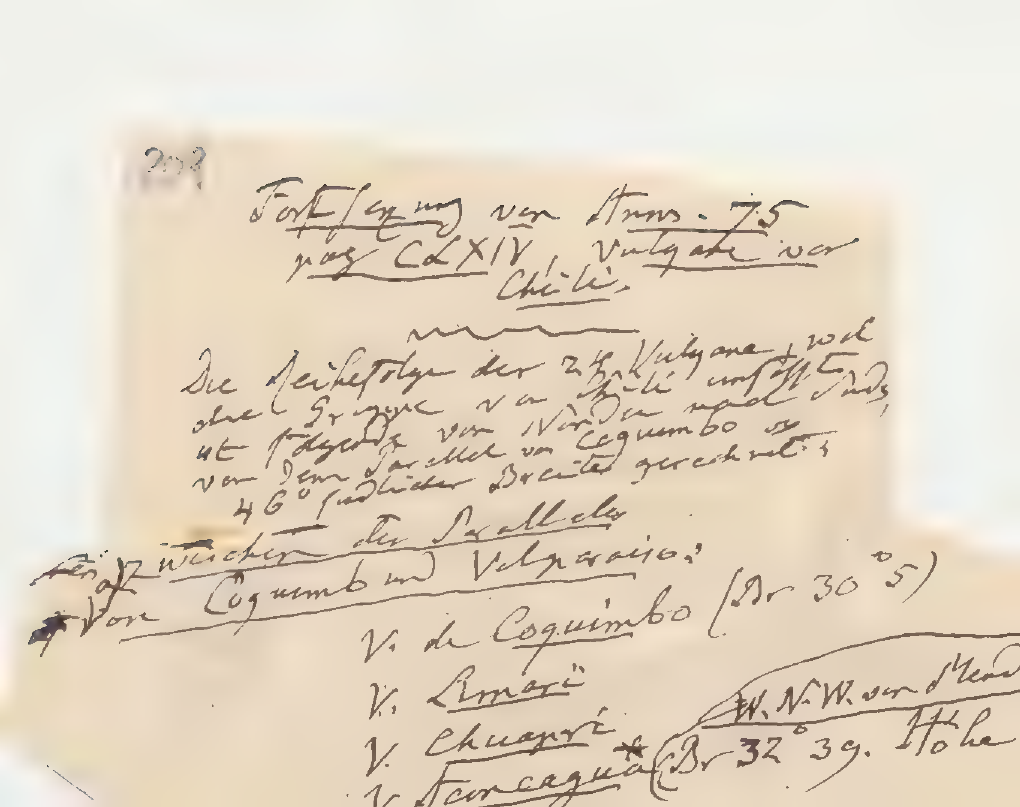 Fortsezung von Anm. 75
pag CLXIV, Vulgane von
Chili.
Die Reihefolge der 24 Vulgane, welche
die Gruppe von Chili umfasst
ist folgende von Norden nach Süden,
von dem Parallel von Coquimbo bis
46° südlicher Breite gerechnet:
a) zwischen den Parallelen
von Coquimbo und Valparaiso:
V. de Coquimbo (Br 30°5)
V. Limari
V. Chuapri
W.N.W. von
V. Aconcagua* (Br 32° 39. Höhe